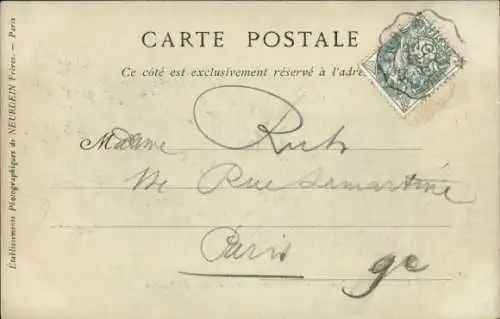 CARTE POSTALE
Ce côté est exclusivement réservé à l'adre
Madame Ruch
Rue Lamartine
Paris 9e
Établissements Photographiques de NEURDEIN Frères. — Paris